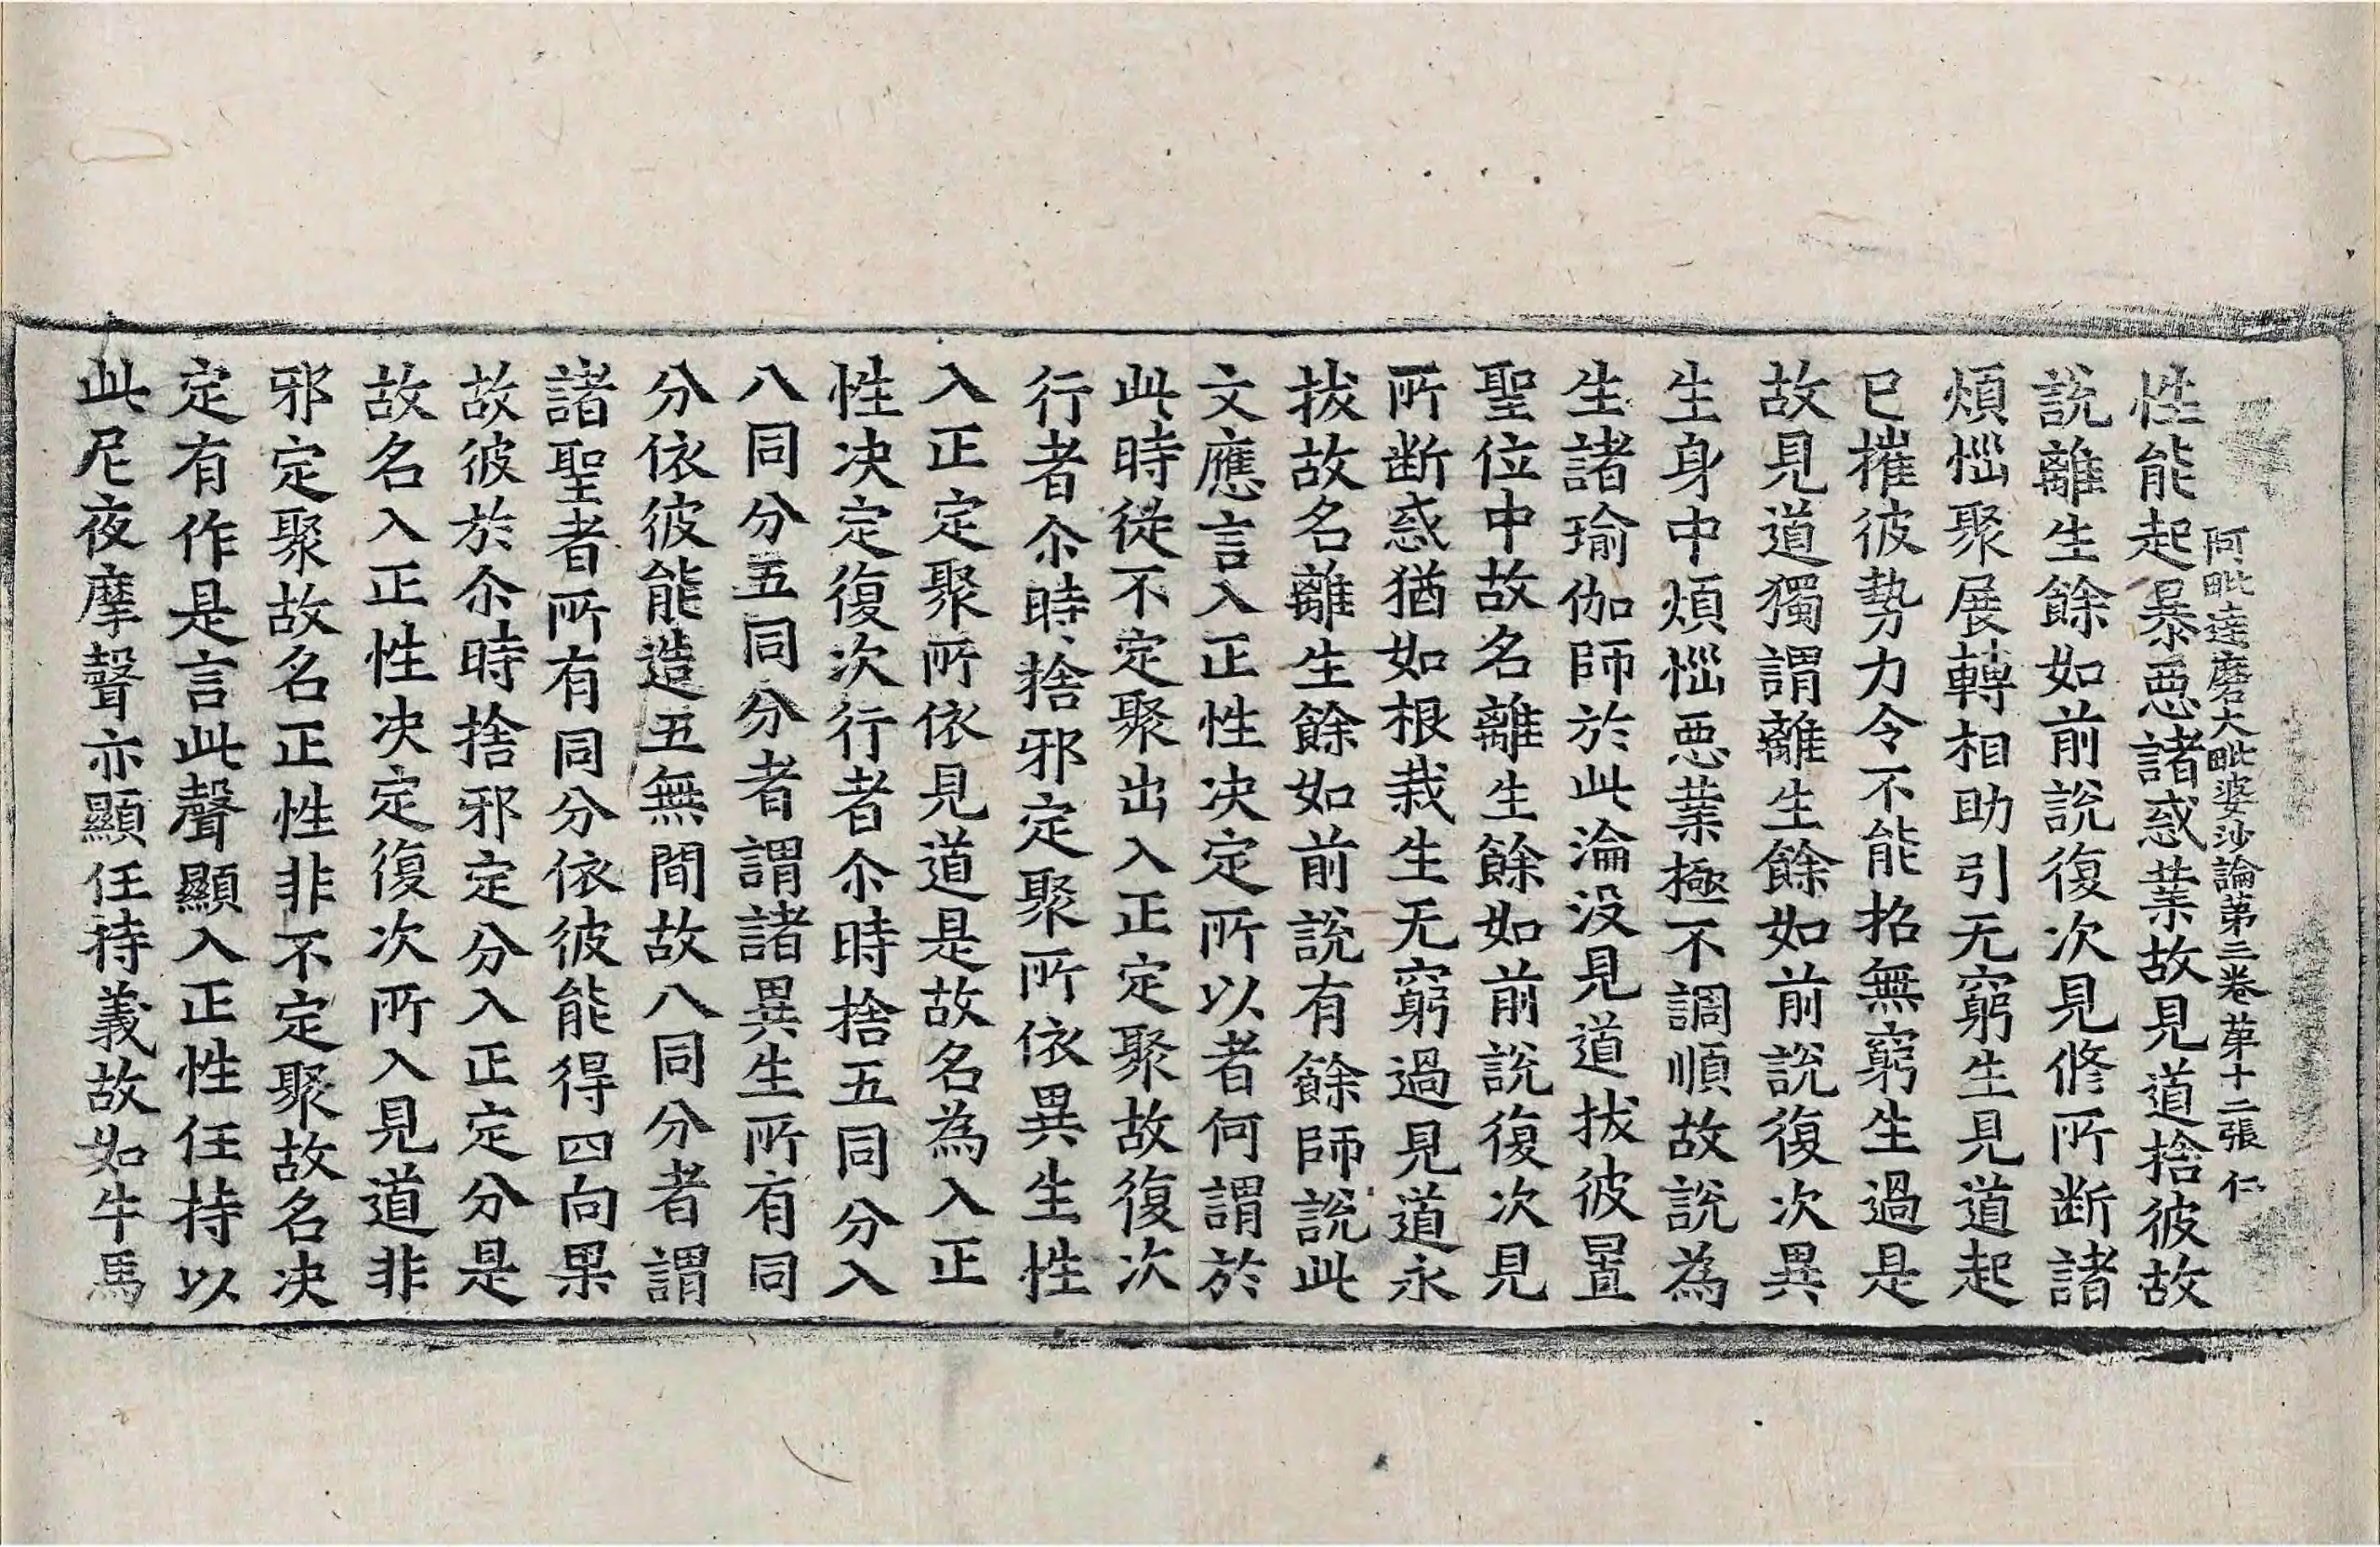 阿毗達磨大毗婆沙論第三卷 苐十二張 仁
性能起暴惡諸惑業故見道捨彼故
說離生餘如前說復次見修所断諸
煩惱聚展轉相助引无窮生見道起
已摧彼勢力令不能招無窮生過是
故見道獨謂離生餘如前說復次異
生身中煩惱惡業極不調順故說為
生諸瑜伽師於此淪没見道拔彼置
聖位中故名離生餘如前說復次見
所断惑猶如根栽生无窮過見道永
拔故名離生餘如前說有餘師說此
文應言入正性決定所以者何謂於
此時従不定聚出入正定聚故復次
行者尒時捨邪定聚所依異生性
入正定聚所依見道是故名為入正
性决定復次行者尒時捨五同分入
八同分五同分者謂諸異生所有同
分依彼能造五無間故八同分者謂
諸聖者所有同分依彼能得四向果
故彼於尒時捨邪定分入正定分是
故名入正性决定復次所入見道非
邪定聚故名正性非不定聚故名决
定有作是言此聲顯入正性任持以
此尼夜摩聲亦顯任持義故如牛馬